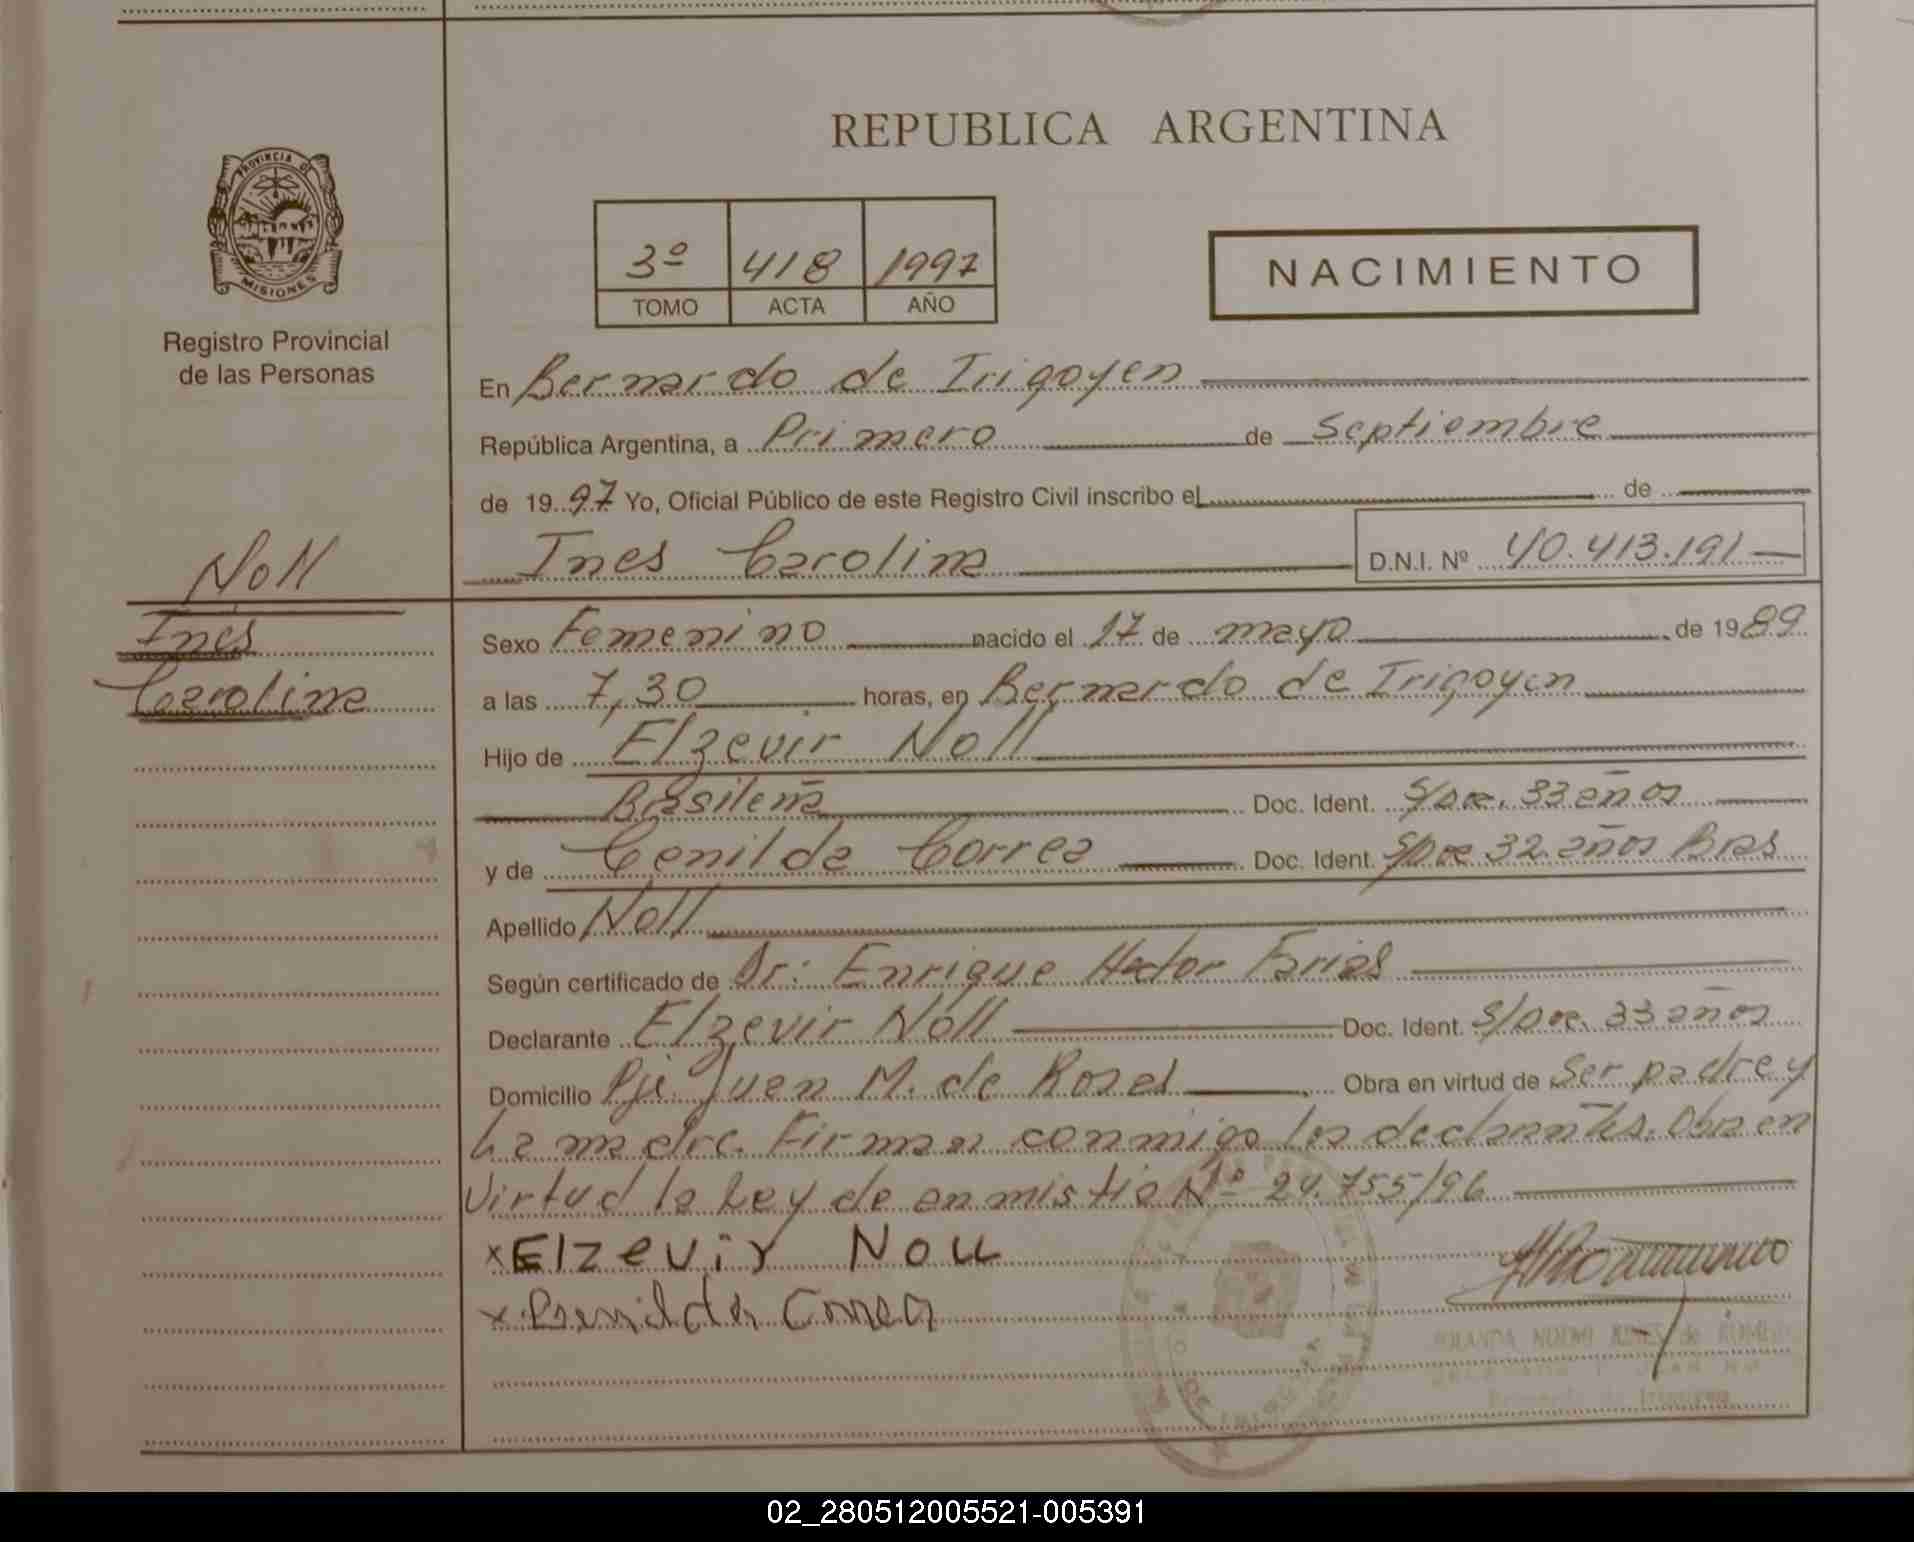 REPUBLICA ARGENTINA
PROVINCIA DE
MISIONES
Registro Provincial
de las Personas
3º 418 1997
TOMO ACTA AÑO
NACIMIENTO
En Bernardo de Irigoyen
República Argentina, a Primero de Septiembre
de 1997 Yo, Oficial Público de este Registro Civil inscribo el de
Ines Carolina D.N.I. Nº 40.413.191
Noll
Ines
Carolina
Sexo Femenino nacido el 17 de mayo de 1989
a las 7,30 horas, en Bernardo de Irigoyen
Hijo de Elzevir Noll
Brasileña Doc. Ident. S/Doc. 33 años
y de Cenilda Correa Doc. Ident. S/Doc 32 años Bras
Apellido Noll
Según certificado de Dr: Enrique Hector Farias
Declarante Elzevir Noll Doc. Ident. S/Doc. 33 años
Domicilio Pje Juan M. de Rosas Obra en virtud de Ser padre y
La madre. Firman conmigo los declarantes. Obra en
Virtud la Ley de enmistia Nº 24.755/96
x Elzevir Noll
x Correa
Bernardo de Irigoyen
02_280512005521-005391